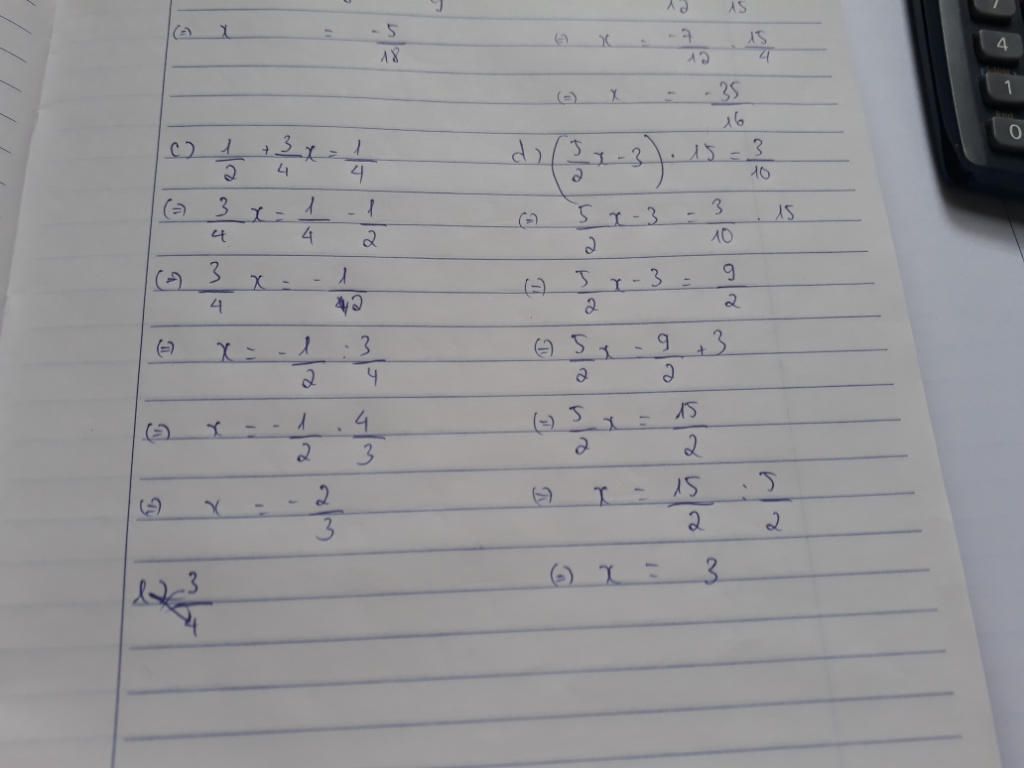 9
12 15
(=) x = -5/18
(=) x = -7/12 . 15/4
(=) x = -35/16
c) 1/2 + 3/4 x = 1/4
(=) 3/4 x = 1/4 - 1/2
(=) 3/4 x = - 1/2
(=) x = - 1/2 : 3/4
(=) x = - 1/2 . 4/3
(=) x = - 2/3
3/4
d) (5/2 x - 3) . 15 = 3/10
(=) 5/2 x - 3 = 3/10 . 15
(=) 5/2 x - 3 = 9/2
(=) 5/2 x - 9/2 + 3
(=) 5/2 x = 15/2
(=) x = 15/2 : 5/2
(=) x = 3
7
4
1
0